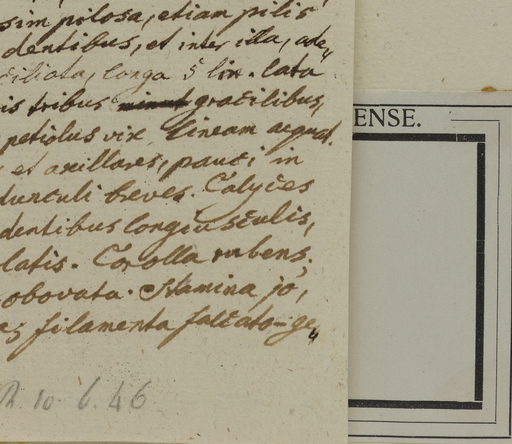 sim pilosa, etiam pilis
dentibus, et inter illa, ade
ciliata, longa 5 lin. lata
is tribus gracilibus,
petiolus vix lineam aequat.
et axillares, pauci in
dunculi breves. Calyces
dentibus longiusculis,
latis. Corolla rubens;
obovata. Stamina 10,
filamenta falcato-ge
R. 10. 6. 46
ENSE.